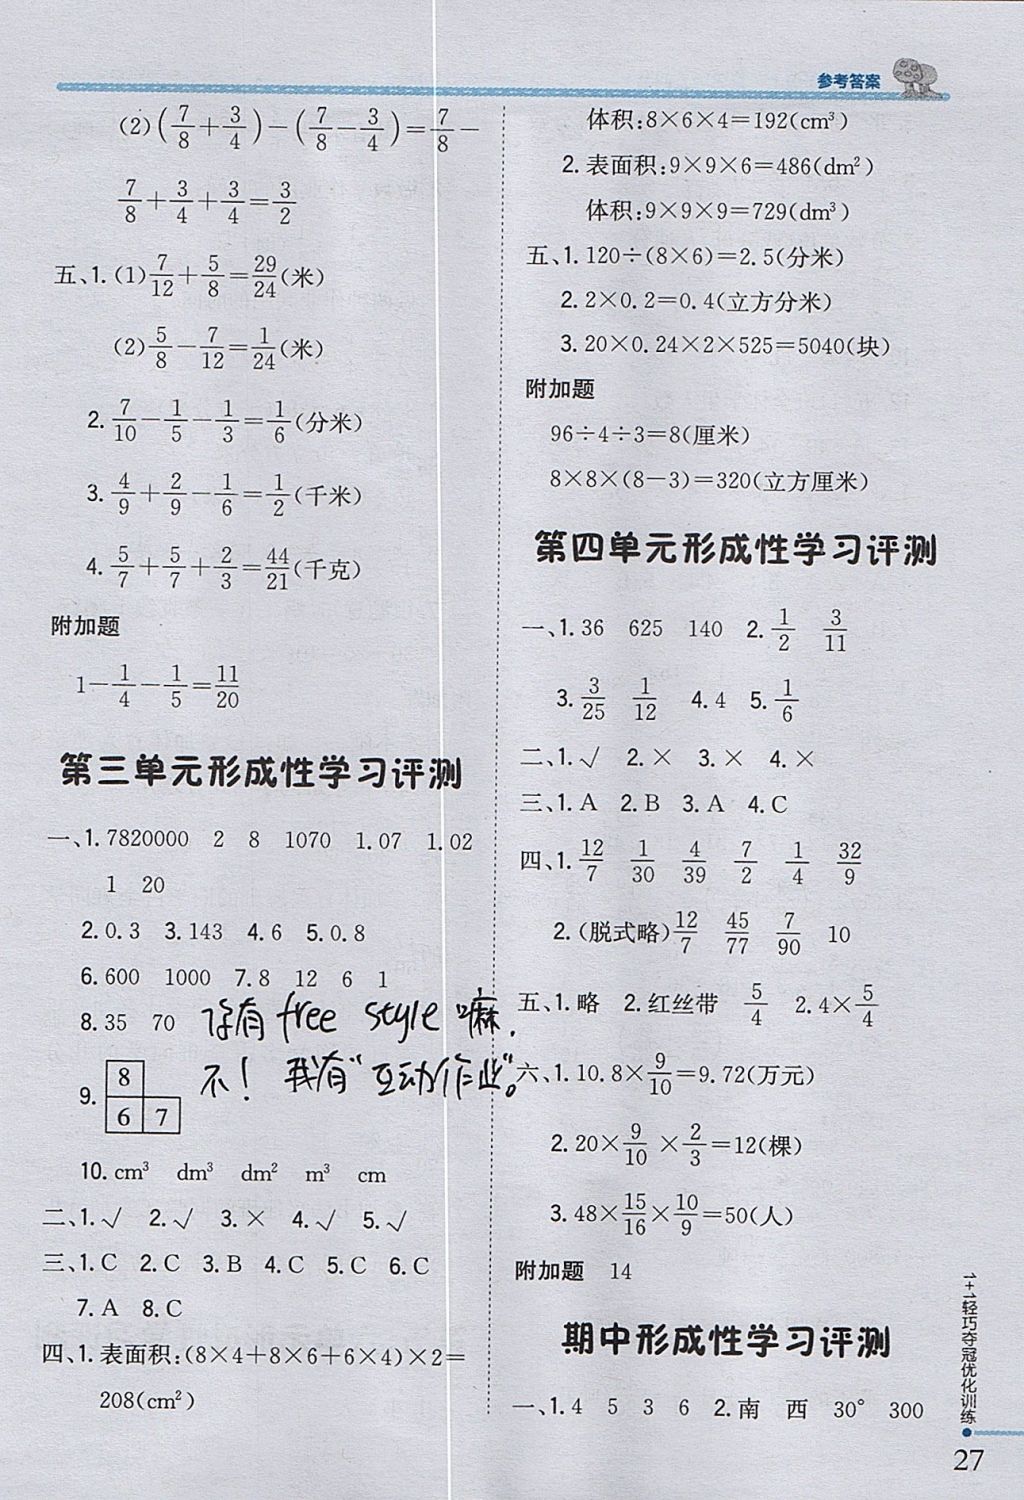 参考答案
(2)(7/8+3/4)-(7/8-3/4)=7/8-
7/8+3/4+3/4=3/2
五、1.(1)7/12+5/8=29/24(米)
(2)5/8-7/12=1/24(米)
2.7/10-1/5-1/3=1/6(分米)
3.4/9+2/9-1/6=1/2(千米)
4.5/7+5/7+2/3=44/21(千克)
附加题
1-1/4-1/5=11/20
第三单元形成性学习评测
一、1.7820000 2 8 1070 1.07 1.02
1 20
2.0.3 3.143 4.6 5.0.8
6.600 1000 7.8 12 6 1
8.35 70
你有free style嘛,
不！我有“互动作业”。
9.
8
6 7
10.cm³ dm³ dm² m³ cm
二、1.√ 2.√ 3.× 4.√ 5.√
三、1.C 2.C 3.B 4.C 5.C 6.C
7.A 8.C
四、1.表面积:(8×4+8×6+6×4)×2=
208(cm²)
体积:8×6×4=192(cm³)
2.表面积:9×9×6=486(dm²)
体积:9×9×9=729(dm³)
五、1.120÷(8×6)=2.5(分米)
2.2×0.2=0.4(立方分米)
3.20×0.24×2×525=5040(块)
附加题
96÷4÷3=8(厘米)
8×8×(8-3)=320(立方厘米)
第四单元形成性学习评测
一、1.36 625 140 2.1/2 3/11
3.3/25 1/12 4.4 5.1/6
二、1.√ 2.× 3.× 4.×
三、1.A 2.B 3.A 4.C
四、1.12/7 1/30 4/39 7/2 1/4 32/9
2.(脱式略)12/7 45/77 7/90 10
五、1.略 2.红丝带 5/4 2.4×5/4
六、1.10.8×9/10=9.72(万元)
2.20×9/10×2/3=12(棵)
3.48×15/16×10/9=50(人)
附加题 14
期中形成性学习评测
一、1.4 5 3 6 2.南 西 30° 300
1+1轻巧夺冠优化训练
27